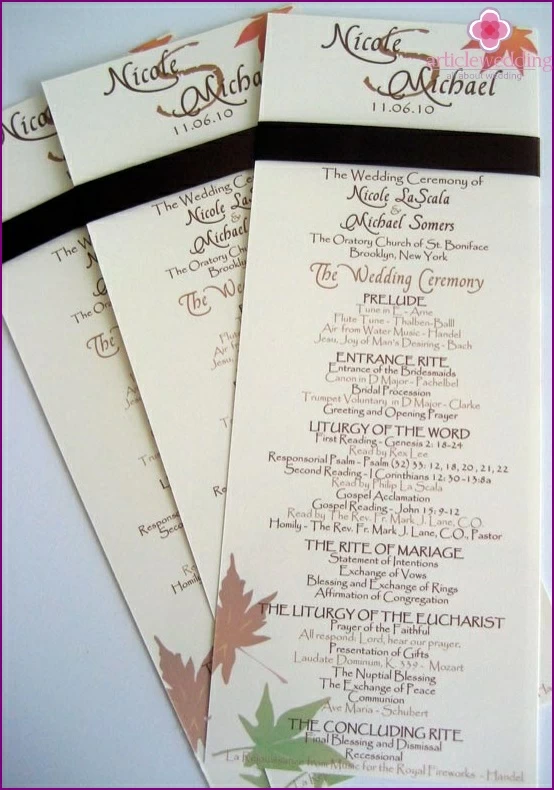 Nicole
&
Michael
11.06.10
articlewedding
all about wedding
The Wedding Ceremony of
Nicole LaScala
&
Michael Somers
The Oratory Church of St. Boniface
Brooklyn, New York
The Wedding Ceremony
PRELUDE
Tune in E - Arne
Flute Tune - Thalben-Balll
Air from Water Music - Handel
Jesu, Joy of Man's Desiring - Bach
ENTRANCE RITE
Entrance of the Bridesmaids
Canon in D Major - Pachelbel
Bridal Procession
Trumpet Voluntary in D Major - Clarke
Greeting and Opening Prayer
LITURGY OF THE WORD
First Reading - Genesis 2: 18-24
Read by Rex Lee
Responsorial Psalm - Psalm (32) 33: 12, 18, 20, 21, 22
Second Reading - I Corinthians 12:30-13:8a
Read by Philip La Scala
Gospel Acclamation
Gospel Reading - John 15: 9-12
Read by The Rev. Fr. Mark J. Lane, C.O.
Homily - The Rev. Fr. Mark J. Lane, C.O., Pastor
THE RITE OF MARIAGE
Statement of Intentions
Exchange of Vows
Blessing and Exchange of Rings
Affirmation of Congregation
THE LITURGY OF THE EUCHARIST
Prayer of the Faithful
All respond: Lord, hear our prayer.
Presentation of Gifts
Laudate Dominum, K. 339 - Mozart
The Nuptial Blessing
The Exchange of Peace
Communion
Ave Maria - Schubert
THE CONCLUDING RITE
Final Blessing and Dismissal
Recessional
La Rejouissance from Music for the Royal Fireworks - Handel
Nicole
Micha
11.06.10
The Wedding Ce
Nicole La
&
Michael
The Oratory Chu
Brooklyn
The We